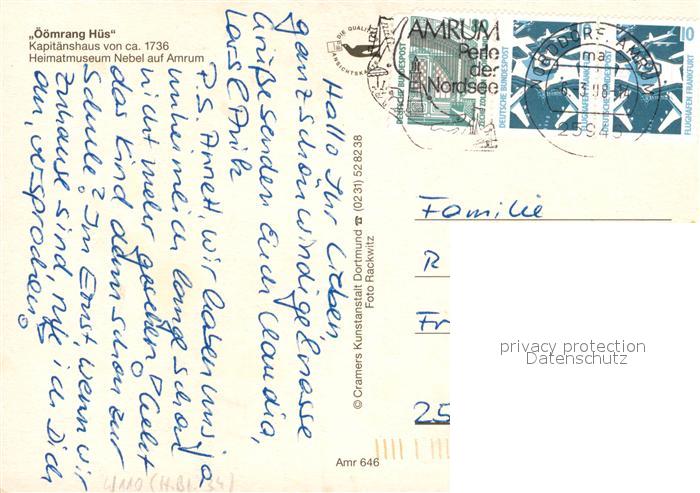 „Öömrang Hüs“
Kapitänshaus von ca. 1736
Heimatmuseum Nebel auf Amrum
Hallo Ihr Lieben,
ganz schön windige Grüsse
Grüße senden Euch Claudia,
Lars
P.S. Annett, wir haben uns ja
unheimlich lange schon
nicht mehr gesehen. Geht
das Kind denn schon zur
Schule? Im Ernst, wenn wir
zuhause sind, rufe ich Dich
an, versprochen
© Cramers Kunstanstalt Dortmund ☎ (0231) 528238
Foto Rackwitz
Amr 646
4/110 (H.Bl. 34)
DIE QUALITÄTS
ANSICHTSKARTE
AMRUM
Perle
der
Nordsee
NORDDORF, AMRUM
DEUTSCHE BUNDESPOST
DEUTSCHE BUNDESPOST
FLUGHAFEN FRANKFURT
DEUTSCHE BUNDESPOST
FLUGHAFEN FRANKFURT
10
Familie
R
Fr
25
privacy protection
Datenschutz